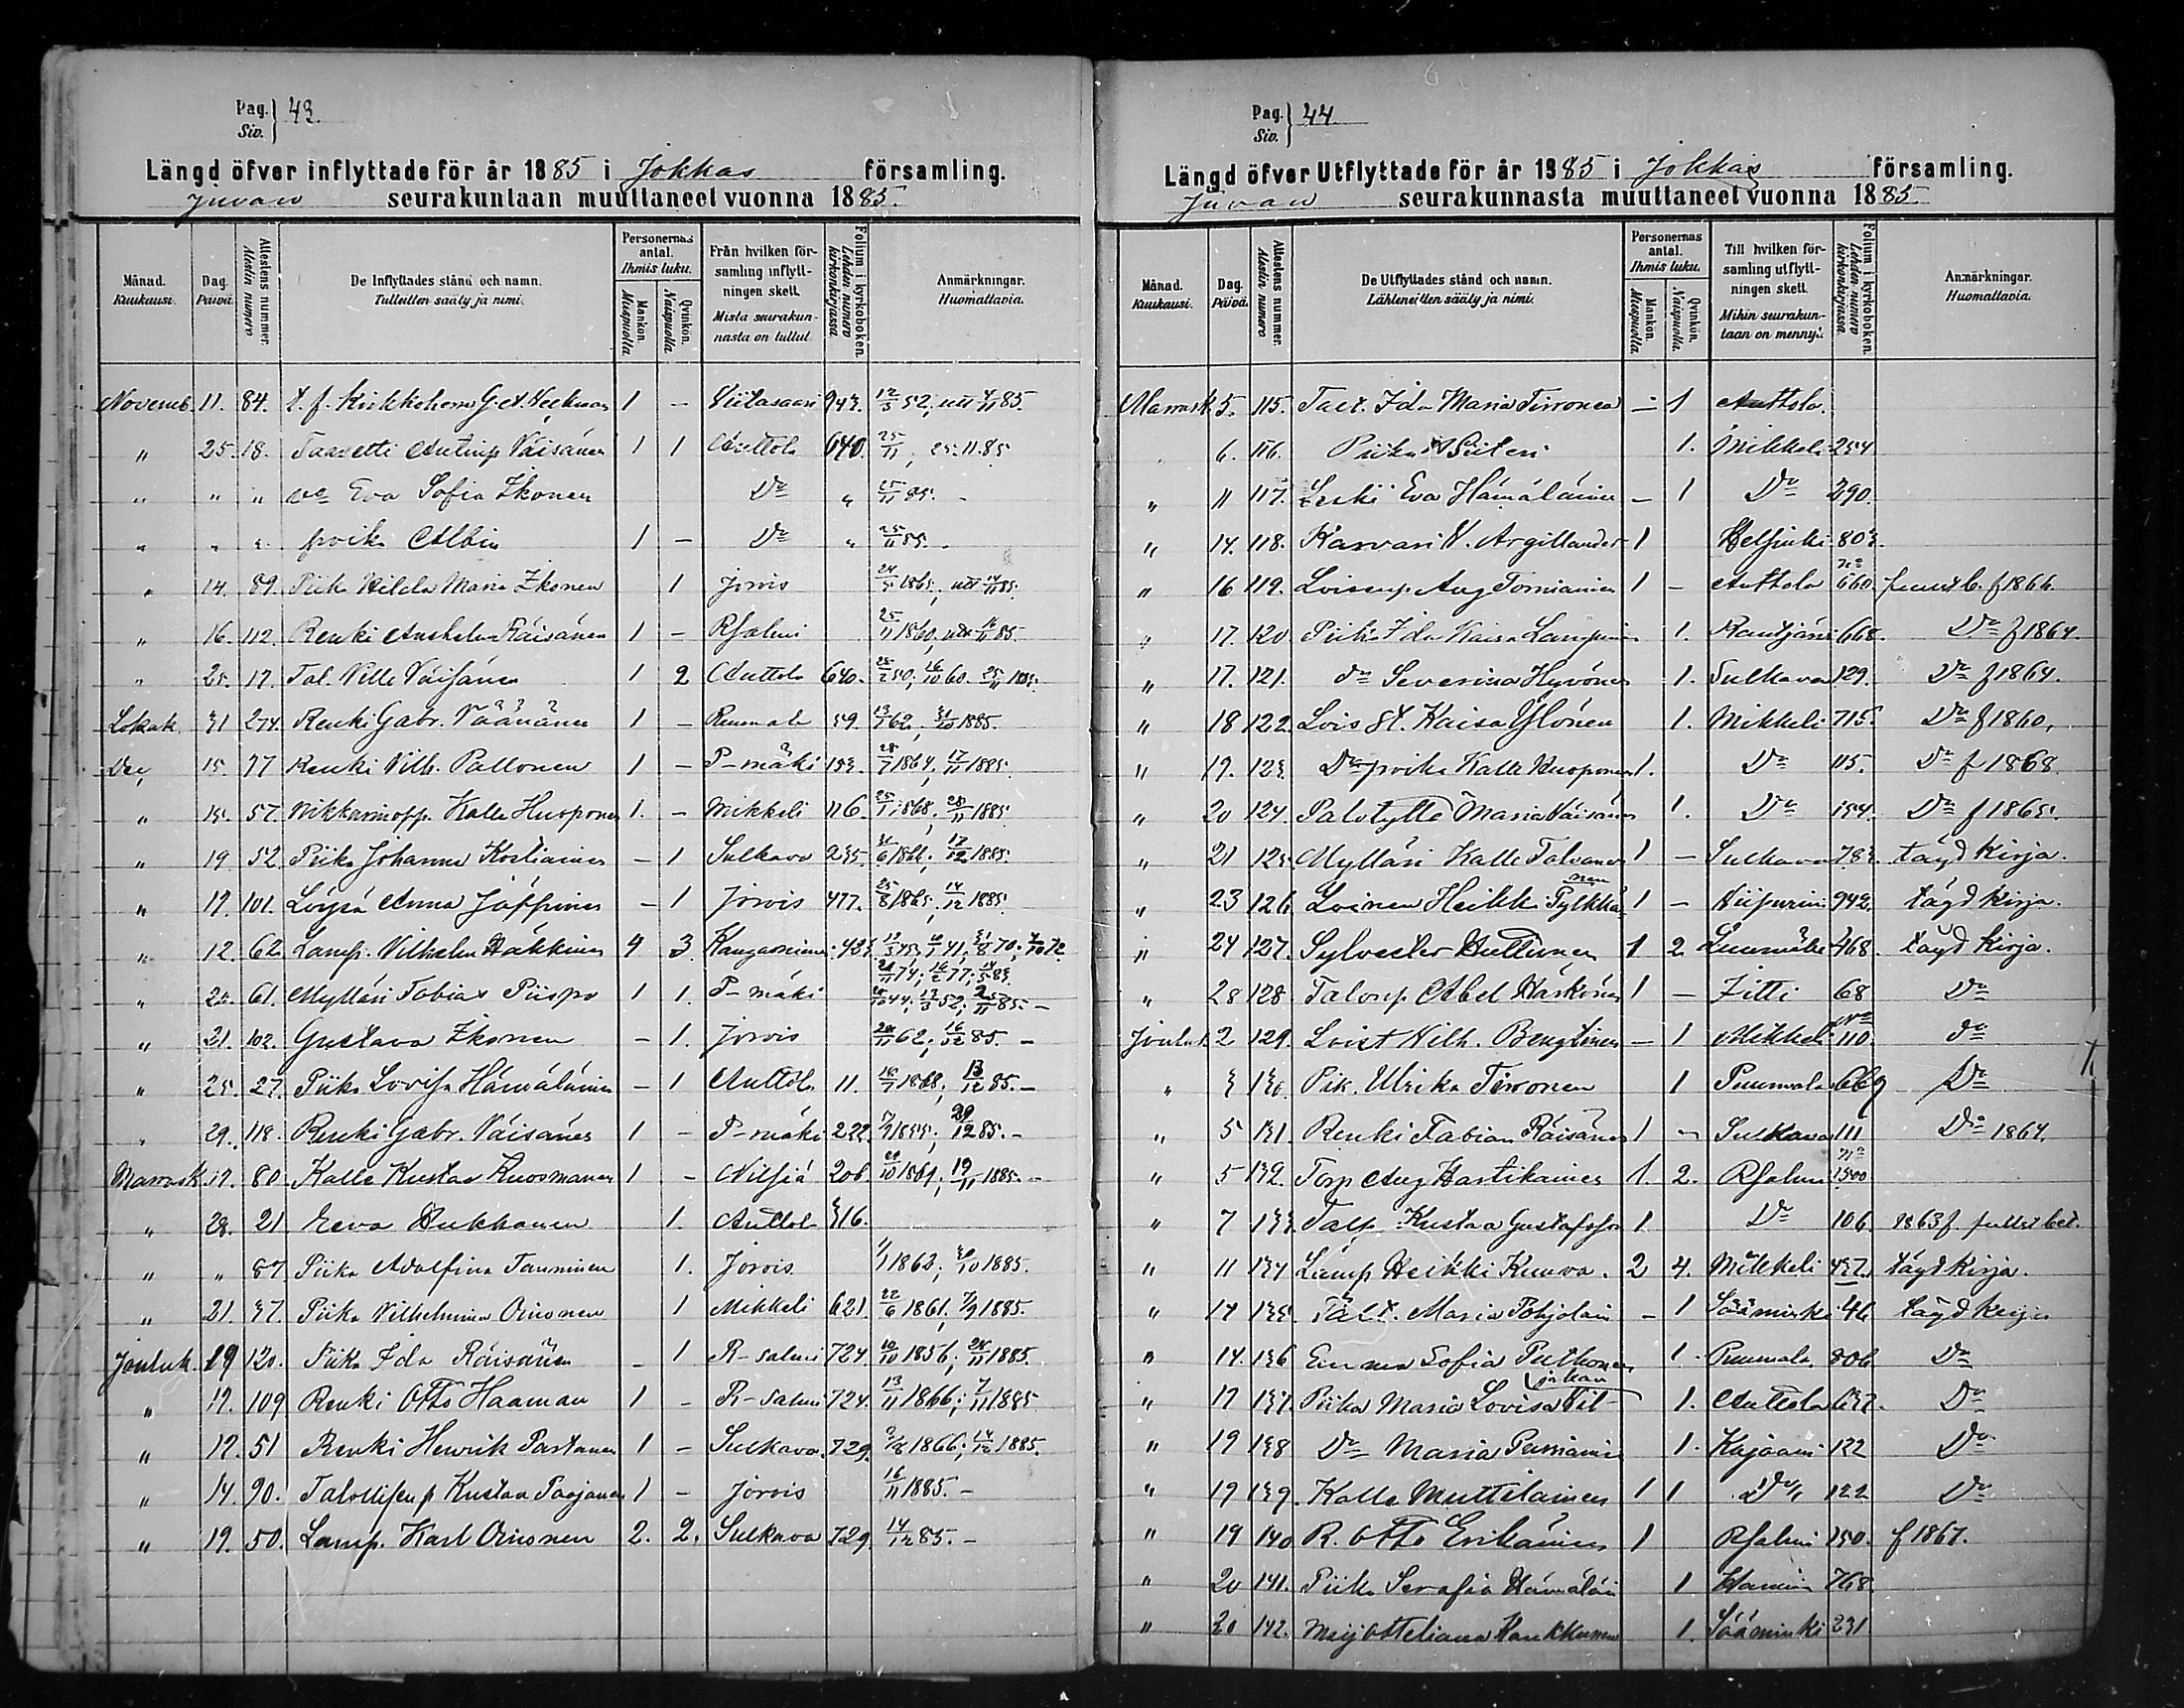 Pag. Siv. 43.
Längd öfver inflyttade för år 1885 i Jokkas församling.
Juvan seurakuntaan muuttaneet vuonna 1885.
Månad. Kuukausi. Dag. Päivä. Attestens nummer. Atestin numero De Inflyttades stånd och namn. Tulleitten sääty ja nimi. Personernas antal. Ihmis luku. Mankön. Miespuolia Qvinkön. Naispuolia Från hvilken församling inflyttningen skett. Mistä seurakunnasta on tullut. Folium i kyrkoboken. Lehden numero kirkonkirjassa Anmärkningar. Huomattavia.
Novemb. 11. 84. 1 - Viitasaari 943.
„ 25. 18. Taavetti Väisänen 1 1 Anttola 640. 25/11, 25.11.85
„ „ „ Eva Sofia Ikonen Do „ 25/11 85. -
„ „ „ poika Albin 1 - Do „ 25/11 85.
„ 14. 89. Piika Hilda Maria Ikonen 1 Jorois
„ 16. 112. Renki Anshelm Räisänen 1 - Rsalmi
„ 25. 17. Tal. Ville Väisänen 1 2 Anttola 640.
Lokak. 31 274. Renki Gabr. Väänänen 1 - Puumala 59. 13/1 62, 31/10 1885.
Dec, 15. 77 Renki Vilh. Pallonen 1 - P-mäki 153. 28/7 1864, 17/11 1885.
„ 15. 57. Nikkarinopp. Kalle Huopone 1. - Mikkeli 116. 25/1 1868, 28/11 1885
„ 19 52. Piika Johanna Kostiainen - 1 Sulkava 235. 17/12 1885.
„ 19. 101. Löysä Anna Jäppinen - 1 Jorois 477. 25/8 1865. 14/12 1885.
„ 12. 62. Lamp. Vilhelm Häkkinen 4 3 Kangasniemi
„ 20. 61. Mylläri Tobias Piispa 1 1. P-mäki
„ 21. 102. Gustava Ikonen - 1. Jorois 62; 16/12 85. -
„ 25. 27. Piika Lovisa Hämäläinen - 1 Anttola 11. 1868, 13/12 85. -
„ 29. 118. Renki Gabr. Väisänen 1 - P-mäki 222. 1855; 29/12 85. -
Marrask. 17. 80 Kalle Kustaa Kuosmanen 1 - Nilsiä 206.
„ 28. 21 Eeva Hukkanen 1. Anttola 316.
„ „ 87 Piika Adolfina Tanninen 1. Jorois 1863; 30/10 1885.
„ 21. 37. Piika Vilhelmina Oinonen 1 Mikkeli 621. 22/6 1861, 7/9 1885.
Jouluk. 19 120. Piika Ida Räisänen - 1 R-salmi 724. 10/10 1856; 28/11 1885.
„ 17. 109 Renki Otto Haaman 1 - R-salmi 724. 13/11 1866; 7/11 1885
„ 17. 51 Renki Henrik Partanen 1 - Sulkava 729. 1866; 14/12 1885.
„ 14. 90. Kustaa Paajanen 1 - Jorois 16/11 1885. -
„ 19. 50. Lamp. Karl Oinonen 2. 2. Sulkava 729. 14/12 85. -
Pag. Siv. 44.
Längd öfver Utflyttade för år 1885 i Jokkas församling.
Juvan seurakunnasta muuttaneet vuonna 1885
Månad. Kuukausi. Dag. Päivä. Attestens nummer. Atestin numero De Utflyttades stånd och namn. Lähteneitten sääty ja nimi. Personernas antal. Ihmis luku. Mankön. Miespuolia Qvinkön. Naispuolia Till hvilken församling utflyttningen skett. Mihin seurakuntaan on mennyt. Folium i kyrkoboken. Lehden numero kirkonkirjassa. Anmärkningar. Huomattavia.
Marrask. 5. 115. Talt. Ida Maria Tirronen - 1 Anttola.
„ 6. 116. Piika 1. Mikkeli 254
„ 11 117. Leski Eva Hämäläinen - 1 Do 290.
„ 14. 118. Karvari V. Argillander 1 Helsinki 803.
„ 16 119. Loisenp. Aug Torniainen 1 - Anttola 660. f 1866.
„ 17. 120 Piika Ida Kaisa Lampinen 1. Rautjärvi 668. Do f 1864.
„ 17. 121. do Severina Hyvönen 1. Sulkava 129. Do f 1864.
„ 18 122. Lois st. Kaisa Ylönen 1. Mikkeli 715. Do f 1860,
„ 19. 123. Do poika Kalle Huoponen 1. Do 115. Do f 1868
„ 20 124. Maria Väisänen 1. Do 154. Do f 1865.
„ 21 125. Mylläri Kalle Talvanen 1 - Sulkava 783. täyd kirja.
„ 23 126 Loinen Heikki Pylkkänen 1 - Viipurin 942. täyd kirja.
„ 24 127. Sylvester Huttunen 1 2 468. täyd kirja.
„ 28 128 Talonp. Abel Härkönen 1 - Iitti 68 Do
Jouluk. 2 129. Loist Vilh. Bengtinen - 1 Mikkeli 110. do
„ 3 130. Pik. Ulrika Tirronen 1 Puumala 669 Do
„ 5 131. Renki Fabian Räisänen 1 - Sulkava 111 Do 1864.
„ 5 132. Torp Aug Hartikainen 1. 2. Rsalmi 1500
„ 7 133. Talp. Kustaa Gustafsson 1 Do 106. 1863 f
„ 11 134 Lamp Heikki Kuuva. 2 4. Mikkeli 437. täyd kirja.
„ 14 135. Talt. Maria Pohjolain - 1 Sääminki 46 täyd kirja
„ 14. 136 Emma Sofia Puttonen 1. Puumala 806 Do
„ 17 137. Piika Maria Lovisa Pitkän 1. Anttola 637. Do
„ 19 138 Do Maria Purniainen 1. Kajaani 122 Do
„ 19 139. Kalle Muttilainen 1 1 Do 122 Do
„ 19 140 R. Otto Erikäinen 1 Rsalmi 150. f 1867.
„ 20 141. Piika Serafia Hämäläin 1 Hamina 768
„ 20 142. Otteliana Kaukkunen 1. Sääminki 231